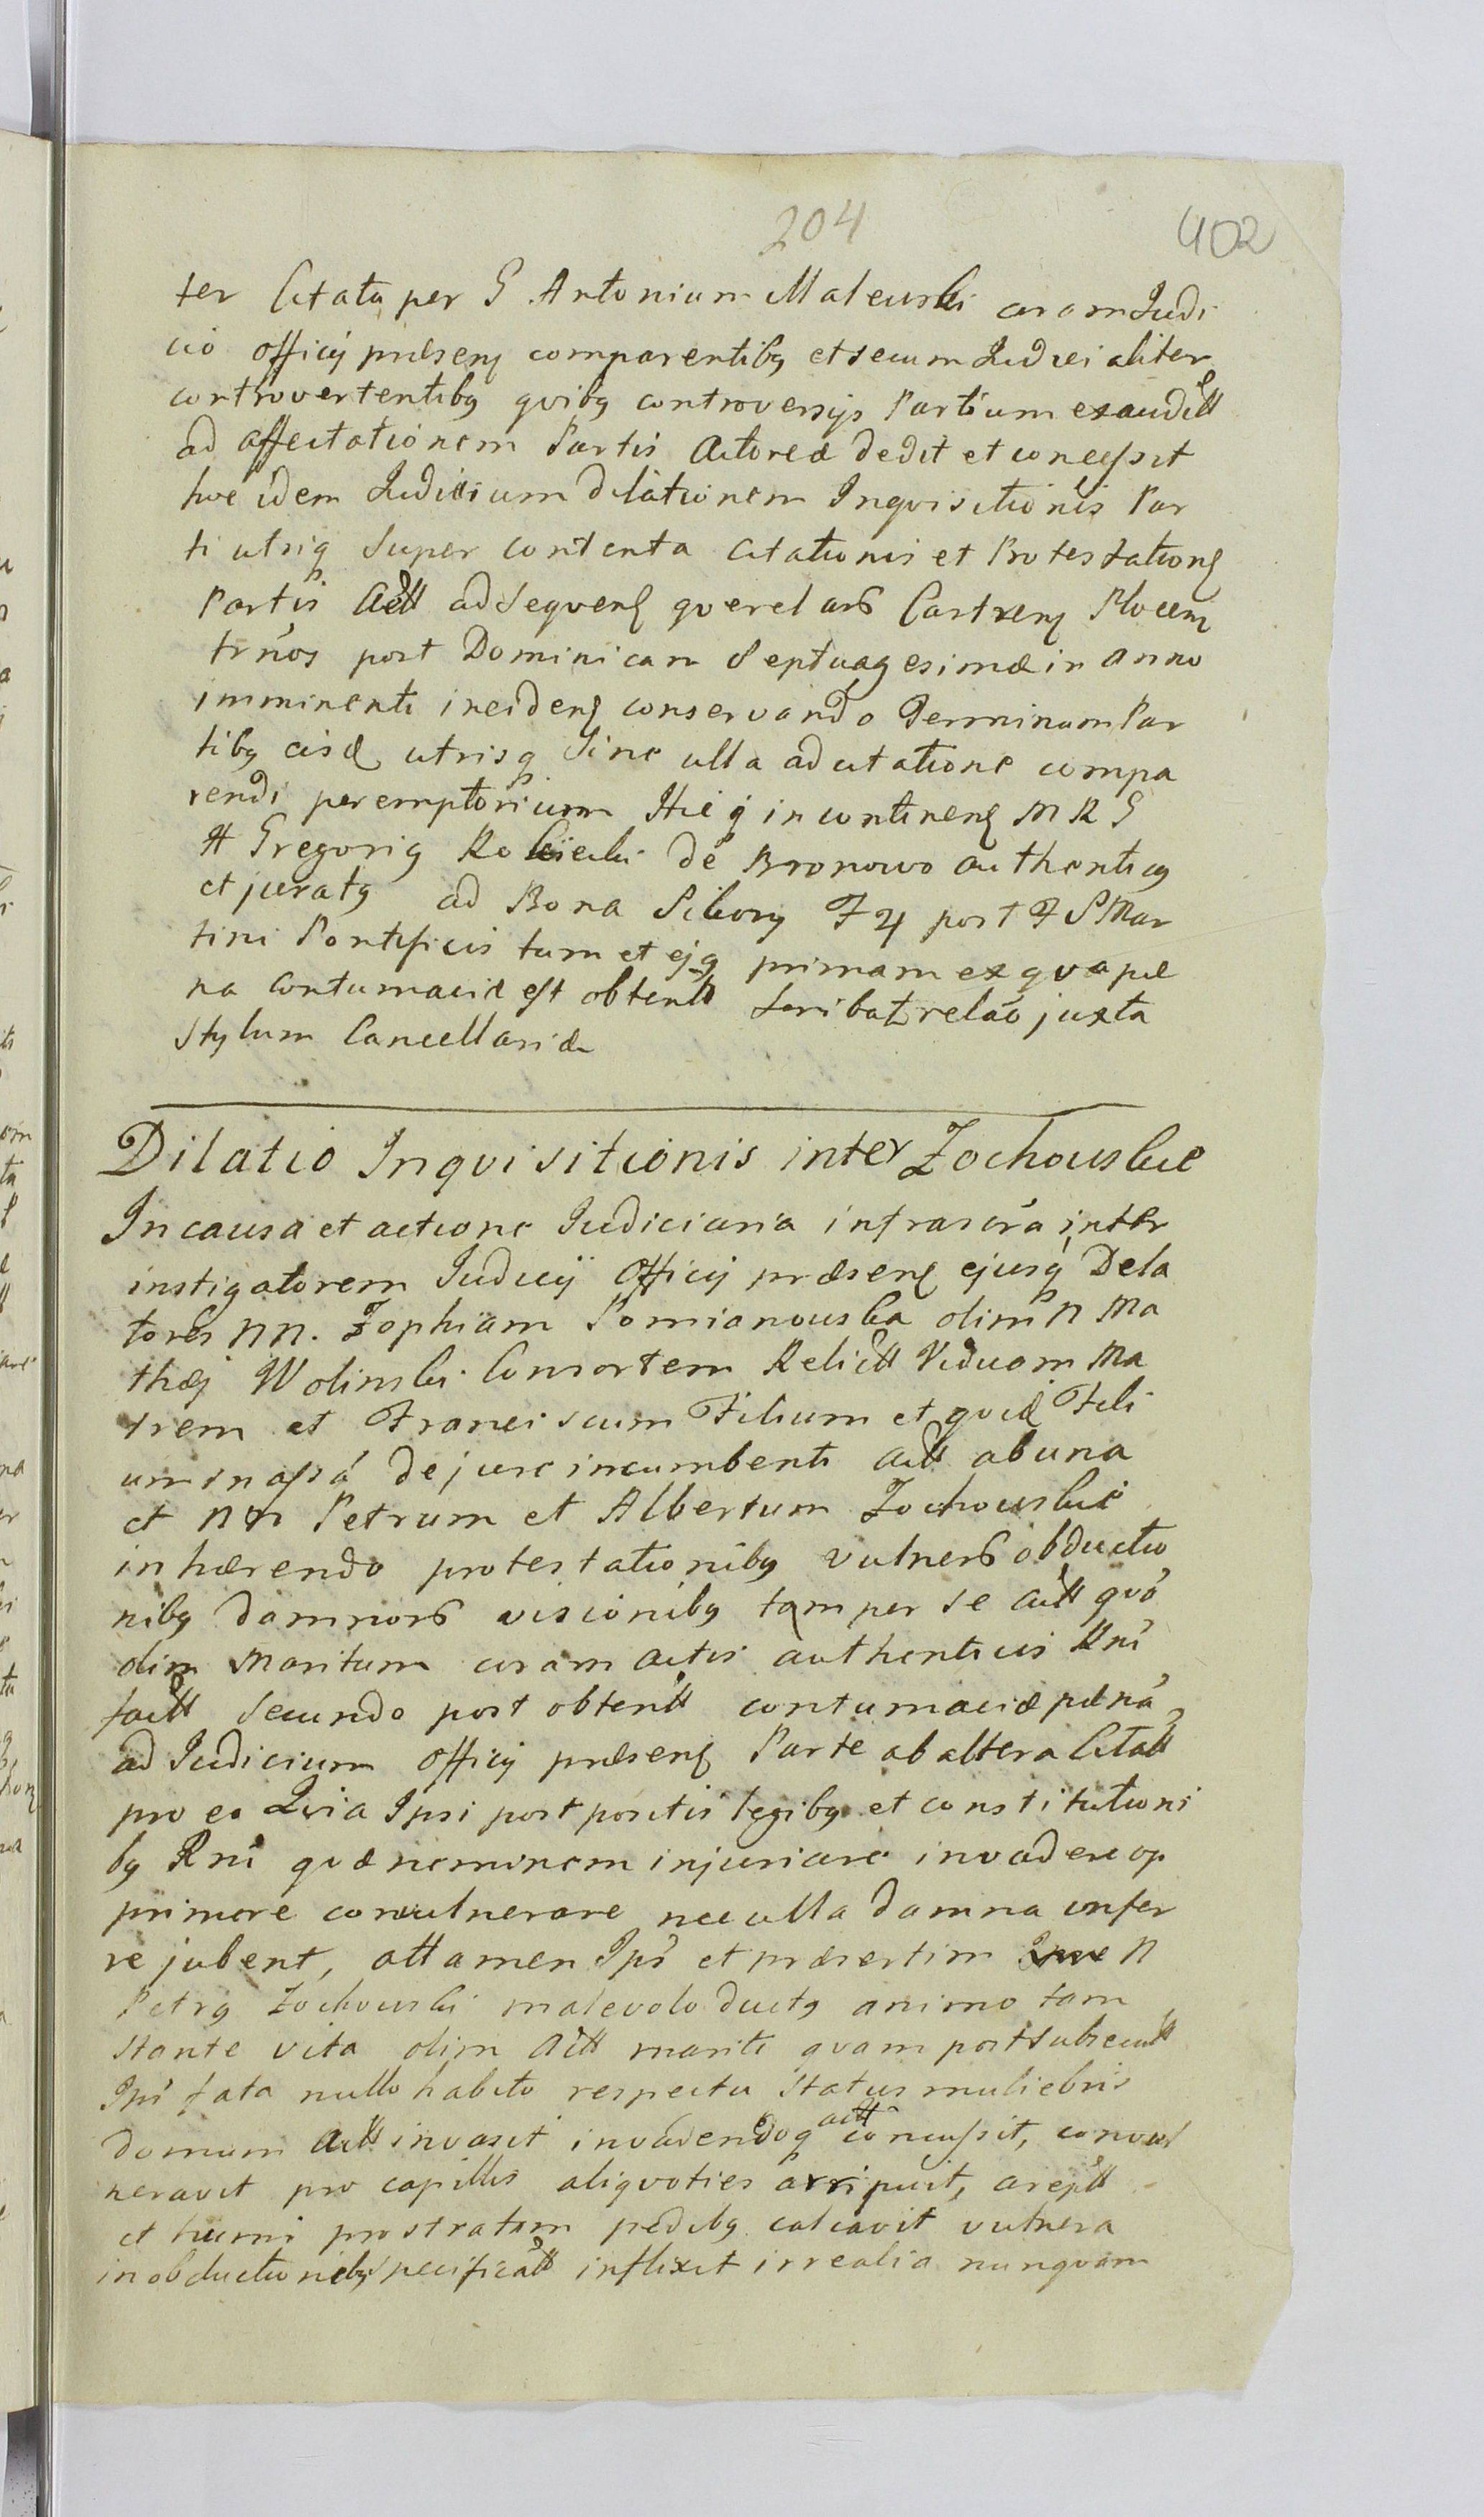 204
402
ter Citata per G Antonium Maleuski coram Judi
cio officij præsenʒ comparentibʒ et secum Judicialiter
controvertentibʒ qvibʒ controversijs Partium exaudittt
ad affectationem Partis Actoreæ dedit et concessit
hoc idem Judicium dilationem Inqvisitionis Par
ti utriqʒ super contenta citationis et Protestationʒ
Partis Actt ad seqvenʒ qverelarʒ Castrenʒ Plocenʒ
trnos post Dominicam Septuagesimæ in anno
imminenti incidenʒ conservando Terminum Par
tibʒ eisdʒ utrisqʒ sine ulla adcitatione compa
rendi peremptorium Hic qʒ in continenʒ M R G
A Gregoriʒ Ro de Bronowo authenticʒ
et juratʒ ad Bona Sikory F 4 post F S Mar
tini Pontificis tum et ejqʒ primam ex qva pæ
na contumaciæ est obtentt scribat relao juxta
stylum Cancellariæ
Dilatio Inqvisitionis inter Zochouskie
In causa et actione Judiciaria infrascra inter
instigatorem Judicij Officij præsenʒ ejusqʒ Dela
tores NN. Zophiam Pomianouska olim N Ma
thæj Wolinski Consortem Relictt Viduam Ma
trem et Franciscum Filium et qvidʒ Fili
um in assa de jure incumbenti actt ab una
et NN Petrum et Albertum Zochouskie
inhærendo protestationibʒ vulnerʒ obductio
nibʒ damnorʒ visionibʒ tam per se actt qvá
olim Maritum coram actis authenticis Rni
factt secundo post obtentt contumaciæ pæná
ad Judicium officij præsenʒ Parte ab altera Citatt
pro eo Qvia Ipsi post positis legibʒ et constitutioni
bʒ Rni qvæ neminem injuriare invadere op
primere convulnerare nec ulla damna infer
re jubent, attamen Ipsi et præsertim N
Petrʒ Zochouski malevolo ductʒ animo tam
stante vita olim Actt mariti qvam post subsecutt
Ipsi fata nullo habito respectu status muliebris
domum actt invasit invadendoqʒ actt concussit, convul
neravit pro capillis aliqvoties arripuit, areptt
et humi prostratam pedibʒ calcavit vulnera
in obductionibʒ specificatt inflixit irrealia nunqvam